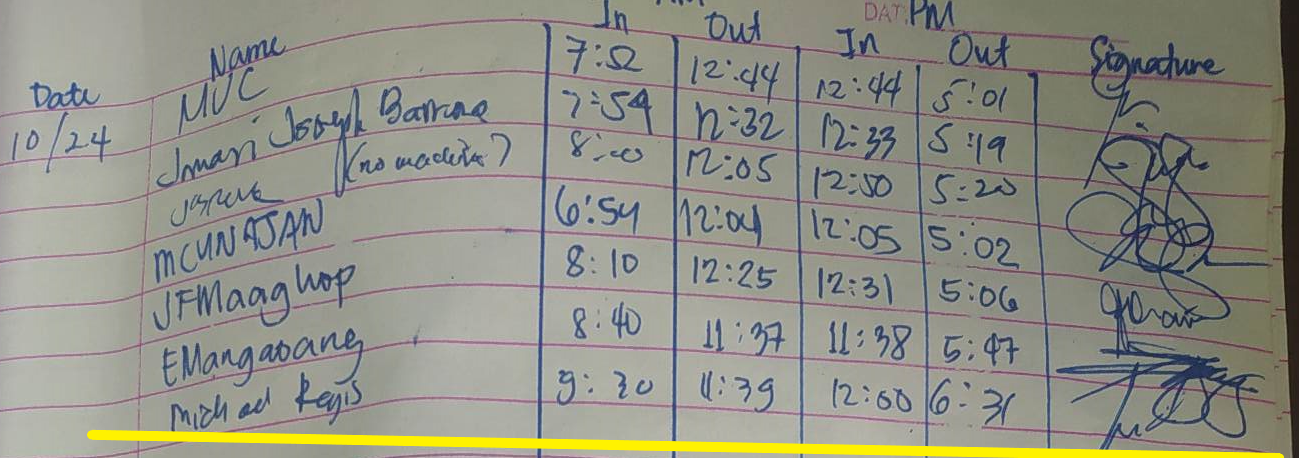 DATE: PM
In Out In Out
Date Name Signature
10/24 MVC 7:52 12:44 12:44 5:01
Joseph 7:54 12:32 12:33 5:19
8:00 12:05 12:50 5:20
6:54 12:04 12:05 5:02
JFMaaghop 8:10 12:25 12:31 5:06
EMangaoang 8:40 11:37 11:38 5:47
Michael Regis 9:30 11:39 12:00 6:31